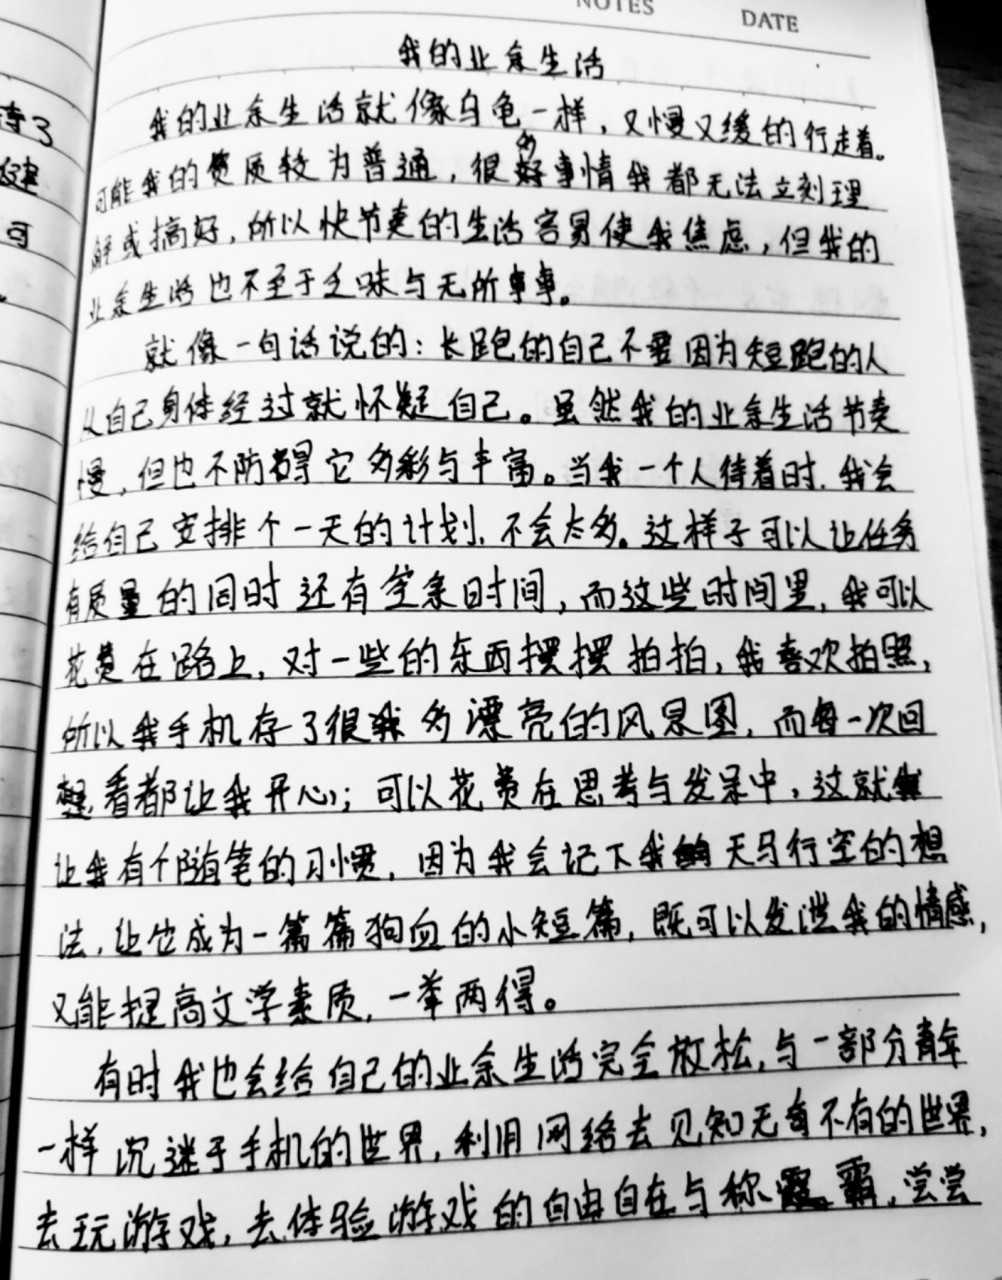 NOTES DATE
我的业余生活
我的业余生活就像乌龟一样，又慢又缓的行走着。
可能我的资质较为普通，很多好事情我都无法立刻理
解或搞好，所以快节奏的生活容易使我焦虑，但我的
业余生活也不至于乏味与无所事事。
就像一句话说的：长跑的自己不要因为短跑的人
从自己身体经过就怀疑自己。虽然我的业余生活节奏
慢，但也不防碍它多彩与丰富。当我一个人待着时，我会
给自己安排个一天的计划，不会太多。这样子可以让任务
有质量的同时还有空余时间，而这些时间里，我可以
花费在路上，对一些的东西摆摆拍拍，我喜欢拍照，
所以我手机存了很多漂亮的风景图，而每一次回
想看都让我开心；可以花费在思考与发呆中，这就
让我有个随笔的习惯，因为我会记下我天马行空的想
法，让它成为一篇篇狗血的小短篇，既可以发泄我的情感，
又能提高文学素质，一举两得。
有时我也会给自己的业余生活完全放松，与一部分青年
一样沉迷于手机的世界，利用网络去见知无奇不有的世界，
去玩游戏，去体验游戏的自由自在与称霸，尝尝
诗了
建
可